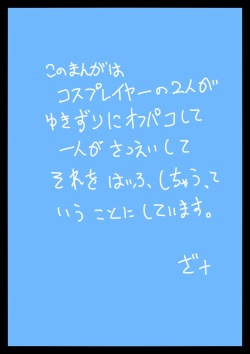 このまんがは
コスプレイヤーの2人が
ゆきずりにオフパコして
一人がさつえいして
それをはいふ、しちゃう、て
いうことにしています。
ざ＋